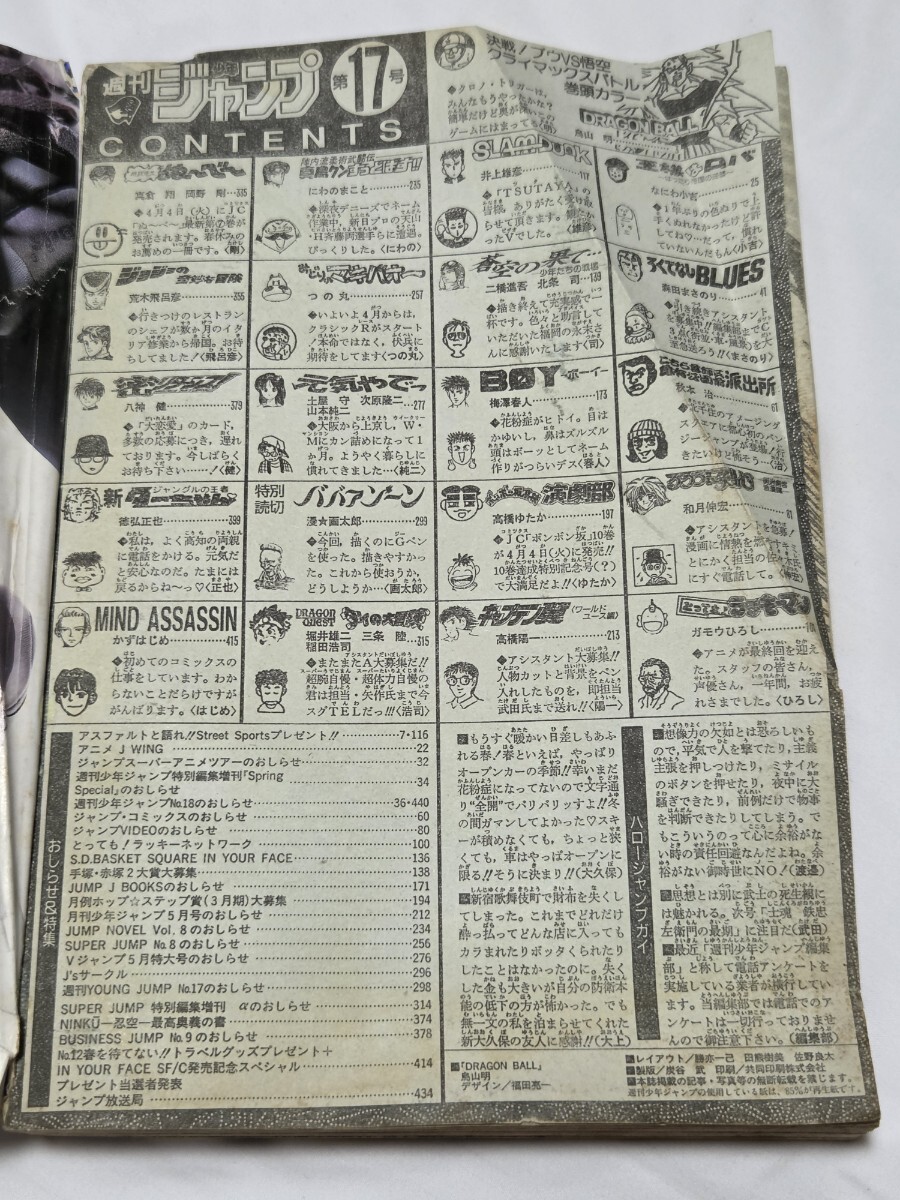 週刊
少年
ジャンプ
第17号
CONTENTS
決戦!ブウVS悟空
クライマックスバトル
巻頭カラー
◆クロノ・トリガーは、
みんなもうやったかな?
簡単だけど奥が
ゲームにはまってる〈明〉
DRAGON BALL
鳥山 明
真倉 翔 岡野 剛…335
◆4月4日(火)にJC
「ぬ〜べ〜」最新第⑦巻が
発売されます。春休みの
お薦めの一冊です。〈剛〉
陣内流柔術武闘伝
真島クンすっとばす!!
にわのまこと………235
◆深夜デニーズでネーム
作業中、新日プロの天山
・H斉藤両選手らに遭遇。
びっくりした。〈にわの〉
SLAM DUNK
井上雄彦………117
◆「TSUTAYA」の
皆様、ありがたく受け取ら
せて頂きます。
ったVでした。〈雄彦〉
王様はロバ
なにわ小吉………25
◆1年ぶりの色ぬりで上
手くぬれなかったけど許
してね♡…だって、慣れ
ていないんだもん〈小吉〉
ジョジョの
奇妙な冒険
荒木飛呂彦………355
◆行きつけのレストラン
のシェフが数か月のイタ
リア修業から帰国。お待
ちしてました!〈飛呂彦〉
みどりのマキバオー
つの丸………257
◆いよいよ4月からは、
クラシックRがスタート
!本命ではなく、伏兵に
期待をしてます〈つの丸〉
蒼空の果て…
少年たちの戦場
二橋進吾 北条 司…139
◆描き終えて充実感で一
杯です。色々と助言して
いただいた福岡の永末さ
んに感謝いたします〈司〉
ろくでなしBLUES
森田まさのり………41
◆引き続きアシスタント
を募集中!!編集部までC
3点(街・車・風景)を大
至急送ろう!!〈まさのり〉
八神 健………379
◆「大恋愛」のカード、
多数の応募につき、遅れ
ております。今しばらく
お待ち下さい……!〈健〉
元気やでっ
土屋 守 次原隆二
山本純二………277
◆大阪から上京し、W・
Mにカン詰めになって1
か月。ようやく暮らしに
慣れてきました…〈純二〉
BØY—ボーイ—
梅澤春人………173
◆花粉症がヒドイ。目は
かゆいし、鼻はズルズル
頭はボーッとしてネーム
作りがつらいデス〈春人〉
こちら葛飾区亀有公園前派出所
秋本 治………61
◆北千住のアメージング
スクエアに都心初のバン
ジージャンプが登場!行
きたいけど怖そう…〈治〉
新
ジャングルの王者
ターちゃん
徳弘正也………399
◆私は、よく高知の両親
に電話をかける。元気だ
と安心なのだ。たまには
戻るからね〜っ♡〈正也〉
特別
読切
ババアゾーン
漫☆画太郎………299
◆今回、描くのにGペン
を使った。描きやすかっ
た。これから使おうか、
どうしようか…〈画太郎〉
演劇部
高橋ゆたか………197
◆JC「ボンボン坂」10巻
が4月4日(火)に発売!!
10巻達成特別記念号(?)
で大満足だよ!!〈ゆたか〉
るろうに剣心
和月伸宏………81
◆アシスタントを急募!
漫画に情熱を燃やす
とにかく担当の佐
にすぐ電話して。
MIND ASSASSIN
かずはじめ………415
◆初めてのコミックスの
仕事をしています。わか
らないことだらけですが
がんばります。〈はじめ〉
DRAGON
QUEST
ダイの大冒険
堀井雄二 三条 陸
稲田浩司………315
◆またまたA大募集だ!!
超腕自慢・超体力自慢の
君は担当・矢作氏まで今
スグTELだっ!!!〈浩司〉
キャプテン翼
(ワールド
ユース編)
高橋陽一………213
◆アシスタント大募集!!
人物カットと背景をペン
入れしたものを、即担当
武田氏まで送れ!!〈陽一〉
とっても!ラッキーマン
ガモウひろし………101
◆アニメが最終回を迎え
た。スタッフの皆さん、
声優さん、一年間、お疲
れさまでした。〈ひろし〉
おしらせ&特集
アスファルトと語れ!!Street Sportsプレゼント!!………7・116
アニメ J WING………22
ジャンプスーパーアニメツアーのおしらせ………32
週刊少年ジャンプ特別編集増刊「Spring
Special」のおしらせ………34
週刊少年ジャンプNo.18のおしらせ………36・440
ジャンプ・コミックスのおしらせ………60
ジャンプVIDEOのおしらせ………80
とっても!ラッキーネットワーク………100
S.D.BASKET SQUARE IN YOUR FACE………136
手塚・赤塚2大賞大募集………138
JUMP J BOOKSのおしらせ………171
月例ホップ☆ステップ賞(3月期)大募集………194
月刊少年ジャンプ5月号のおしらせ………212
JUMP NOVEL Vol.8のおしらせ………234
SUPER JUMP No.8のおしらせ………256
Vジャンプ5月特大号のおしらせ………276
J'sサークル………296
週刊YOUNG JUMP No.17のおしらせ………298
SUPER JUMP 特別編集増刊 αのおしらせ………314
NINKŪ—忍空—最高奥義の書………374
BUSINESS JUMP No.9のおしらせ………378
No.12春を待てない!!トラベルグッズプレゼント+
IN YOUR FACE SF/C発売記念スペシャル………414
プレゼント当選者発表
ジャンプ放送局………434
ハロージャンプガイ
■もうすぐ暖かい日差しもあふ
れる春!春といえば、やっぱり
オープンカーの季節!!幸いまだ
花粉症になってないので文字通
り"全開"でバリバリッすよ!!冬
の間ガマンしてよかった♡スキ
ーが積めなくても、ちょっと狭
くても、車はやっぱオープンに
限る!!そうに決まり!!(大久保)
■新宿歌舞伎町で財布を失くし
てしまった。これまでどれだけ
酔っ払ってどんな店に入っても
カラまれたりボッタくられたり
したことはなかったのに。失く
した金も大きいが自分の防衛本
能の低下の方が怖かった。でも
無一文の私を泊まらせてくれた
新大久保の友人に感謝!!(大上)
■想像力の欠如とは恐ろしいも
ので、平気で人を撃てたり、主義
主張を押しつけたり、ミサイル
のボタンを押せたり、夜中に大
騒ぎできたり、前例だけで物事
を判断できたりしてしまう。で
もこういうのって心に余裕がな
い時の責任回避なんだよね。余
裕がない御時世にNO!(渡邊)
■思想とは別に武士の死生観に
は魅かれる。次号「士魂 鉄忠
左衛門の最期」に注目だ(武田)
■最近「週刊少年ジャンプ編集
部」と称して電話アンケートを
実施している業者が横行してい
ます。当編集部では電話でのア
ンケートは一切行っておりませ
んので御注意下さい。(編集部)
■「DRAGON BALL」
鳥山明
デザイン/福田亮一
■レイアウト/勝亦一己 田熊樹美 佐野良太
■製版/炭谷 武 印刷/共同印刷株式会社
■本誌掲載の記事・写真等の無断転載を禁じます。
週刊少年ジャンプの使用している紙は、65%が再生紙です。